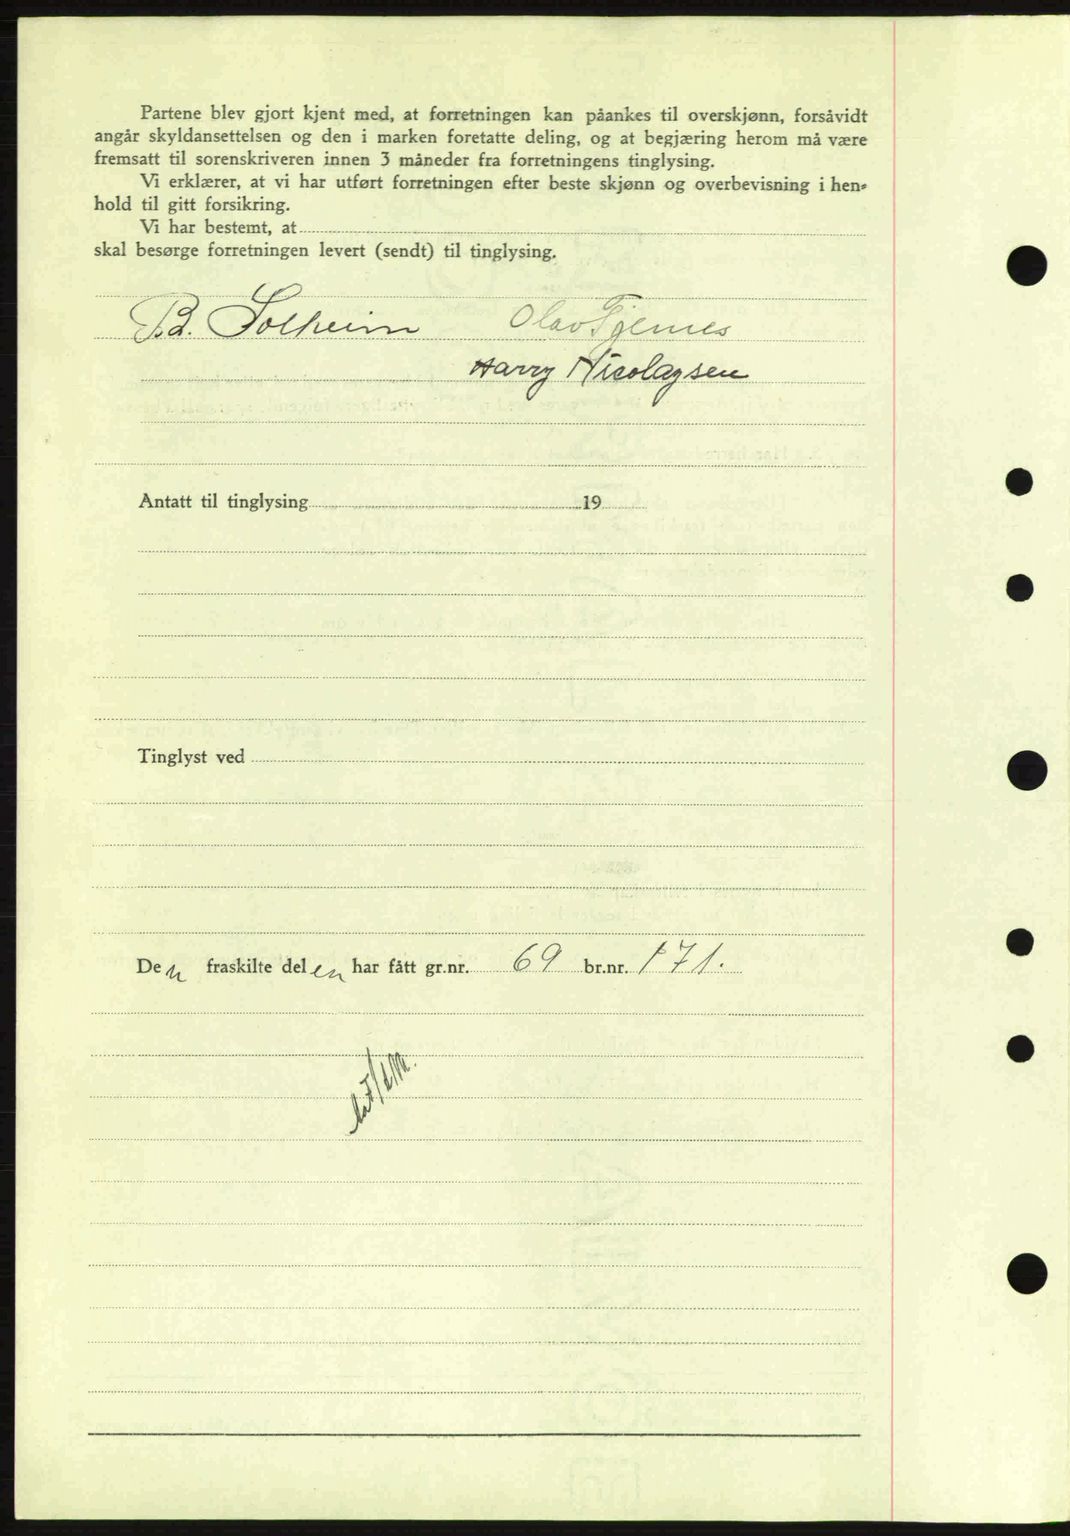 Partene blev gjort kjent med, at forretningen kan påankes til overskjønn, forsåvidt
angår skyldansettelsen og den i marken foretatte deling, og at begjæring herom må være
fremsatt til sorenskriveren innen 3 måneder fra forretningens tinglysing.
Vi erklærer, at vi har utført forretningen efter beste skjønn og overbevisning i hen-
hold til gitt forsikring.
Vi har bestemt, at
skal besørge forretningen levert (sendt) til tinglysing.
Solheim Olav Fjelnes
Harry Nicolaysen
Antatt til tinglysing 19
Tinglyst ved
Den fraskilte delen har fått gr.nr. 69 br.nr. 171.